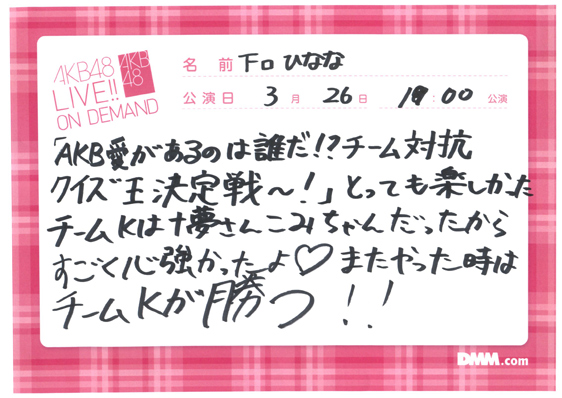 AKB48
LIVE!!
ON DEMAND
AKB
48
名前 下口ひなな
公演日 3月 26日 18:00 公演
「AKB愛があるのは誰だ!?チーム対抗
クイズ王決定戦～!」とっても楽しかった
チームKは十夢さんこみちゃんだったから
すごく心強かったよ♡またやった時は
チームKが勝つ!!
DMM.com